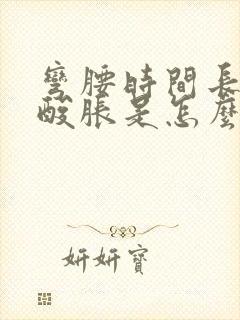 彎腰時間長
酸脹是怎麼
妍妍寶